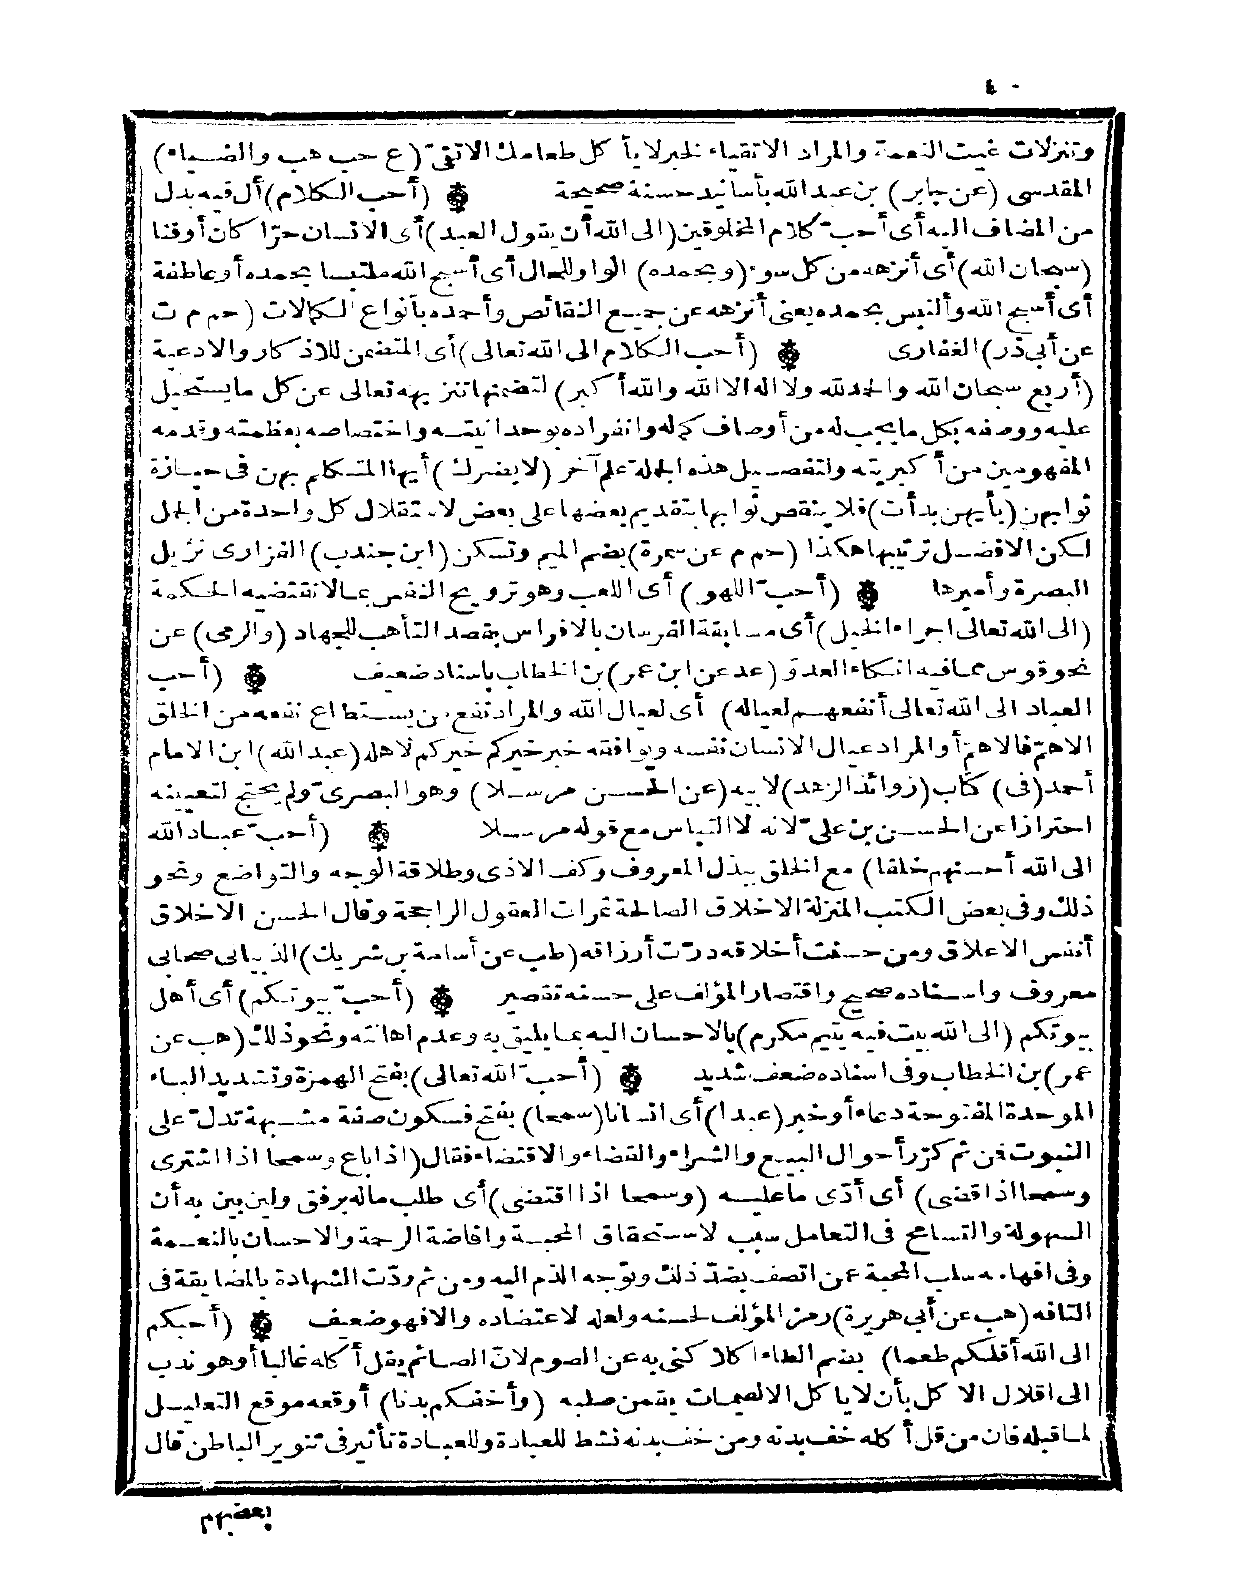 ٤٠
وتنزلات غيث النعمة والمراد الاتقياء لخبر لا يأكل طعامك الا تقىّ (ع حب هب والضياء)
المقدسى (عن جابر) بن عبد الله بأسانيد حسنة صحيحة (أحب الكلام) أل فيه بدل
من المضاف اليه أى أحبّ كلام المخلوقين (الى الله أن يقول العبد) أى الانسان حرّا كان أو قنا
(سبحان الله) أى أنزهه من كل سوء (وبحمده) الواو للحال أى أسبح الله ملتبسا بحمده أو عاطفة
أى أسبح الله وألتبس بحمده يعنى أنزهه عن جميع النقائص وأحمده بأنواع الكمالات (حم م ت
عن أبى ذر) الغفارى (أحب الكلام الى الله تعالى) أى المتضمن للاذكار والادعية
(أربع سبحان الله والحمد لله ولا اله الا الله والله أكبر) لتضمنها تنزيهه تعالى عن كل ما يستحيل
عليه ووصفه بكل ما يجب له من أوصاف كماله وانفراده بوحدانيته واختصاصه بعظمته وقدمه
المفهومين من أكبريته ولتفصيل هذه الجملة علم آخر (لا يضرك) أيها المتكلم بهن فى حيازة
ثوابهن (بأيهن بدأت) فلا ينقص ثوابها بتقديم بعضها على بعض لاستقلال كل واحدة من الجمل
لكن الافضل ترتيبها هكذا (حم م عن سمرة) بضم الميم وتسكن (ابن جندب) الفزارى نزيل
البصرة وأميرها (أحبّ اللهو) أى اللعب وهو ترويح النفس بما لا تقتضيه الحكمة
(الى الله تعالى اجراء الخيل) أى مسابقة الفرسان بالافراس بقصد التأهب للجهاد (والرمى) عن
نحو قوس مما فيه انكاء العدوّ (عد عن ابن عمر) بن الخطاب باسناد ضعيف (أحب
العباد الى الله تعالى أنفعهم لعياله) أى لعيال الله والمراد نفع من يستطاع نفعه من الخلق
الاهمّ فالاهمّ أو المراد عيال الانسان نفسه ويوافقه خبر خيركم خيركم لاهله (عبد الله) ابن الامام
أحمد (فى) كتاب (زوائد الزهد) لابيه (عن الحسن مرسلا) وهو البصرىّ ولم يحتج لتعيينه
احترازا عن الحسن بن علىّ لانه لا التباس مع قوله مرسلا (أحبّ عباد الله
الى الله أحسنهم خلقا) مع الخلق ببذل المعروف وكف الاذى وطلاقة الوجه والتواضع ونحو
ذلك وفى بعض الكتب المنزلة الاخلاق الصالحة ثمرات العقول الراجحة وقال الحسن الاخلاق
أنفس الاعلاق ومن حسنت أخلاقه درّت أرزاقه (طب عن أسامة بن شريك) الذبيانى صحابى
معروف واسناده صحيح واقتصار المؤلف على حسنه تقصير (أحبّ بيوتكم) أى أهل
بيوتكم (الى الله بيت فيه يتيم مكرم) بالاحسان اليه بما يليق به وعدم اهانته ونحو ذلك (هب عن
عمر) بن الخطاب وفى اسناده ضعف شديد (أحبّ الله تعالى) بفتح الهمزة وتشديد الباء
الموحدة المفتوحة دعاء أو خبر (عبدا) أى انسانا (سمعا) بفتح فسكون صفة مشبهة تدلّ على
الثبوت فمن ثم كرّر أحوال البيع والشراء والقضاء والاقتضاء فقال (اذا باع وسمحا اذا اشترى
وسمحا اذا قضى) أى أدّى ما عليه (وسمحا اذا اقتضى) أى طلب ماله برفق ولين بين به أن
السهولة والتسامح فى التعامل سبب لاستحقاق المحبة وافاضة الرحمة والاحسان بالنعمة
وفى افهامه سلب المحبة عن اتصف بضدّ ذلك وتوجه الذم اليه ومن ثم ردّت الشهادة بالمضايقة فى
التافه (هب عن أبى هريرة) رمز المؤلف لحسنه ولعله لاعتضاده والا فهو ضعيف (أحبكم
الى الله أقلكم طعما) بضم الطاء اكلا كنى به عن الصوم لانّ الصائم يقل أكله غالبا أو هو ندب
الى اقلال الاكل بأن لا يأكل الا لقيمات يقمن صلبه (وأخفكم بدنا) أوقعه موقع التعليل
لما قبله فان من قل أكله خف بدنه ومن خف بدنه نشط للعبادة وللعبادة تأثير فى تنوير الباطن قال
بعضهم